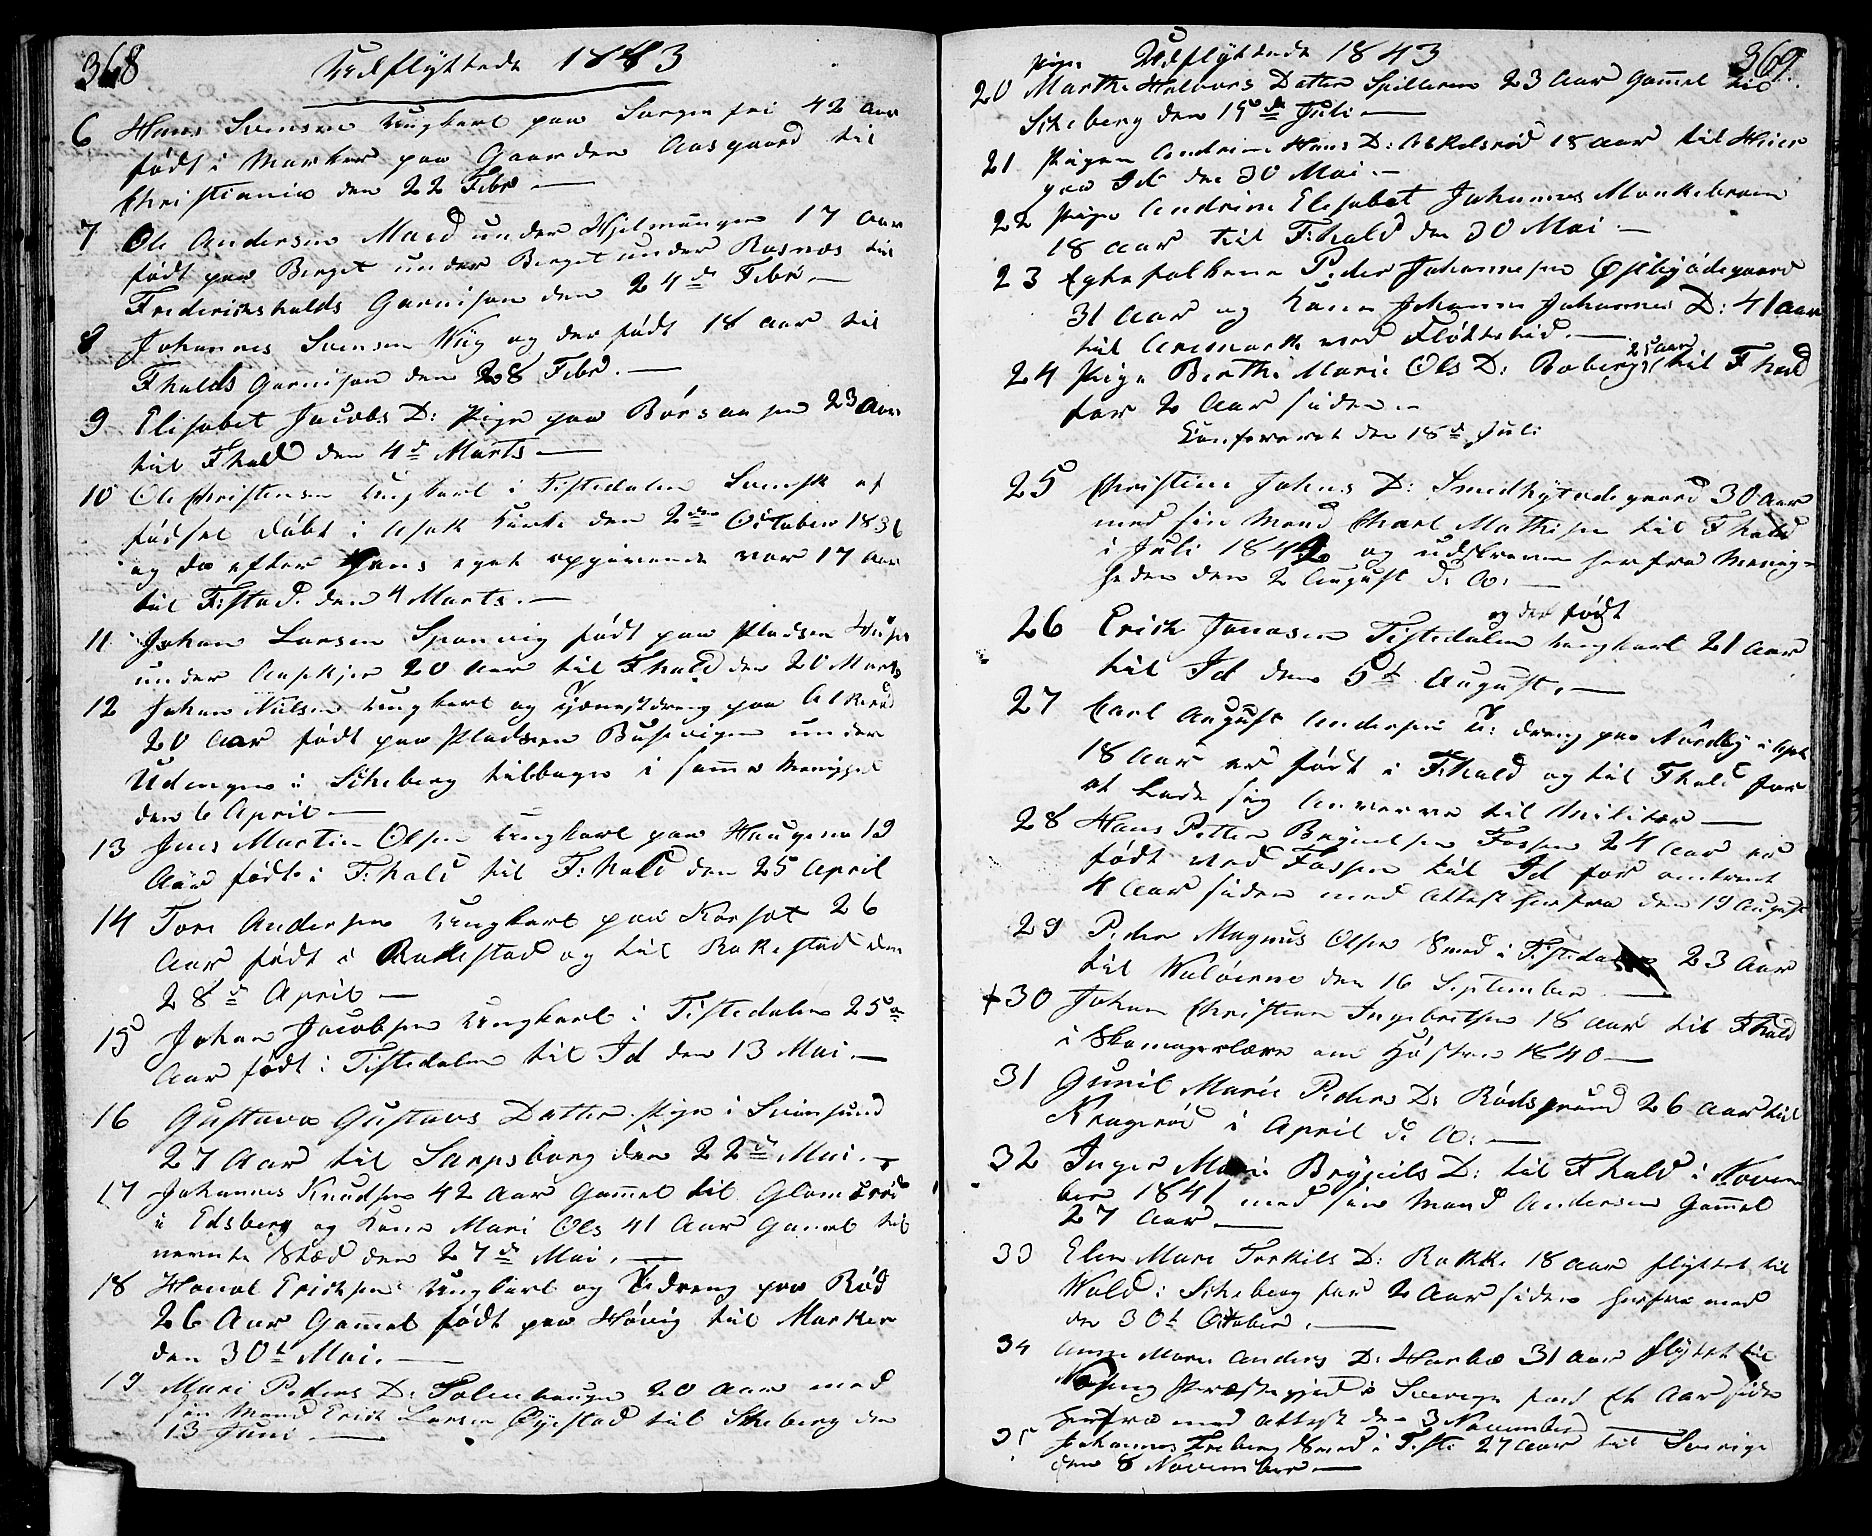 368
Udflyttede 1843
6 Hans Svensen Ungkarl paa Sorgenfri 42 Aar
født i Marker paa Gaarden Aasgaard til
Christiania den 22 Febr
7 Ole Andersen Maed under Hjelmungen 17 Aar
født paa Berget under Berget under Rosnæs til
Frederikshalds Garnison den 24de Febr.
8 Johannes Svensen Wiig og der født 18 Aar til
Fhalds Garnison den 28 Febr.
9 Elisabet Jacobs D: Pige paa Börsaasen 23 Aar
til Fhald den 4de Marts
10 Ole Christensen Ungkarl i Tistedalen Svensk af
fødsel døbt i Asak Kirke den 2den October 1836
og da efter Hans eget opgivende var 17 Aar
til F:stad. den 4 Marts.
11 Johan Larsen Sponvig født paa Pladsen
under 20 Aar til Fhald den 20 Marts
12 Johan Nilsen Ungkarl og Tjenestdreng paa
20 Aar født paa Pladsen Busevigen under
Udengen i Skeberg tilbage i samme Menighed
den 6 April
13 Jens Martin Olsen Ungkarl paa Haugene 19
Aar født i F:hald til F:hald den 25 April
14 Tore Andersen Ungkarl paa Korset 26
Aar født i Rakkestad og til Rakkestad den
28de April
15 Johan Jacobsen Ungkarl i Tistedalen 25
Aar født i Tistedalen til Id den 13 Mai
16 Gustava Gustavs Datter Pige i Svinesund
27 Aar til Sarpsborg den 22de Mai.
17 Johannes Knudsen 42 Aar Gammel til
i Edsberg og Kone Mari Ols 41 Aar Gammel til
nevnte Stæd den 27de Mai.
18 Erichsen Ungkarl og T:dreng paa Rød
26 Aar Gammel født paa Hövig til Marker
den 30t Mai.
19 Mari Peders D: Solenhaugen 20 Aar med
sin Mand Erich Larsen Øyestad til Skeberg den
13 Juni
369.
Udflyttede 1843
Pige
20 Marthe Halvors Datter Spilleren 23 Aar Gammel til
Skeberg den 19de Juli
21 Pigen Andrine Hans D: 18 Aar til
paa Id den 30 Mai.
22 Pige Andrine Elisabet Johannes Munkebraaten
18 Aar til F:hald den 30 Mai
23 Egtefolkene Peder Johannesen Østbyødegaard
31 Aar og Kone Johanne Johannes D: 41 Aar
til Aremark ved Fløttetid.
25 Aar
24 Pige Berthe Marie Ols D: Roberg, til Fhald
for 2 Aar siden.
Konfereret den 18de Juli
25 Christine Johns D: Smedhytødegaard 30 Aar
med sin Mand Charl Mathisen til Fhald
i Juli 1842 og udskreven herfra Menig-
heden den 2 August d: A:
og der født
26 Erich Jonasen Tistedalen Ungkarl 21 Aar
til Id den 5t August.
27 Carl August Andersen T: dreng paa Nordby i
18 Aar er født i F:hald og til Fhald for
at lade sig Anverve til Militær
28 Hans Petter Brynelsen Fossen 24 Aar er
født ved Fossen til Id for omtrent
4 Aar siden med Attest herfra den 19 August
29 Peder Magnus Olsen Smed i Tistedalen 23 Aar
til Waløerne den 16 September
+30 Johan Christian Ingebretsen 18 Aar til Fhald
i Skomagerlære om Høsten 1840
31 Gunil Marie Peders D: Rødsgrund 26 Aar til
Kragerøe i April d: A:
32 Inger Marie Brynils D: til Fhald i Novem
ber 1841 med sin Mand Andersen Gammel
27 Aar
33 Elen Mari Torkils D: Rakke 18 Aar flyttet til
Wold i Skeberg for 2 Aar siden herfra med
den 30t October.
34 Anne Maria Anders D: Harbo 31 Aar flyttet til
Præstegjed i Sverige for et Aar siden
herfra med Attest den 3 November
35 Johannes Freberg Smed i Tiste 27 Aar til Sverige
den 8 November